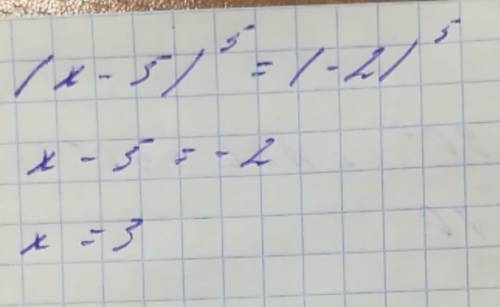 (x - 5)⁵ = (-2)⁵
x - 5 = -2
x = 3